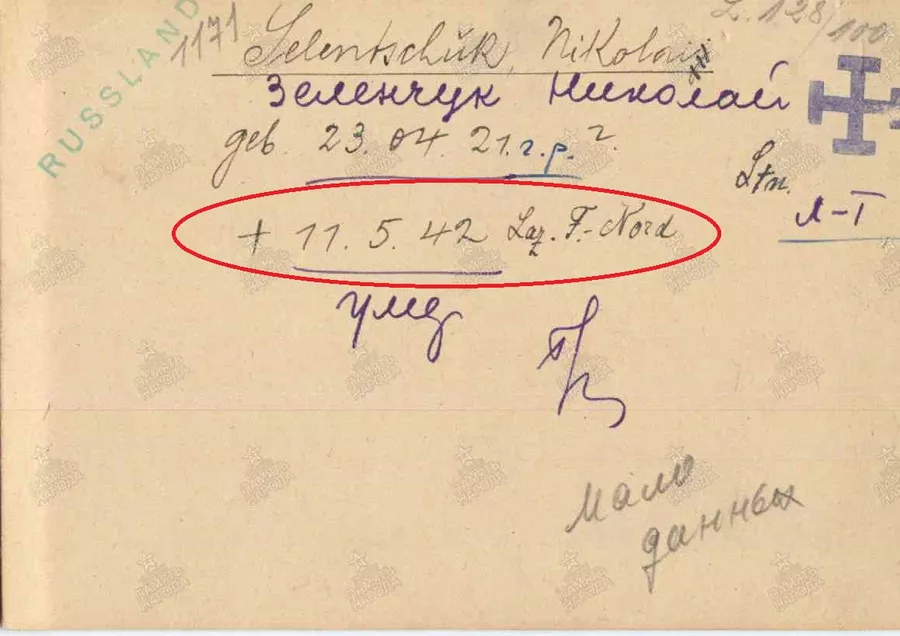 RUSSLAND
1171
Selentschuk, Nikolai
Зеленчук Николай
геб. 23.04.21.г.р. г.
Ltn.
Л-Т
+ 11.5.42 Laz. F.-Nord
умер
Мало
данных